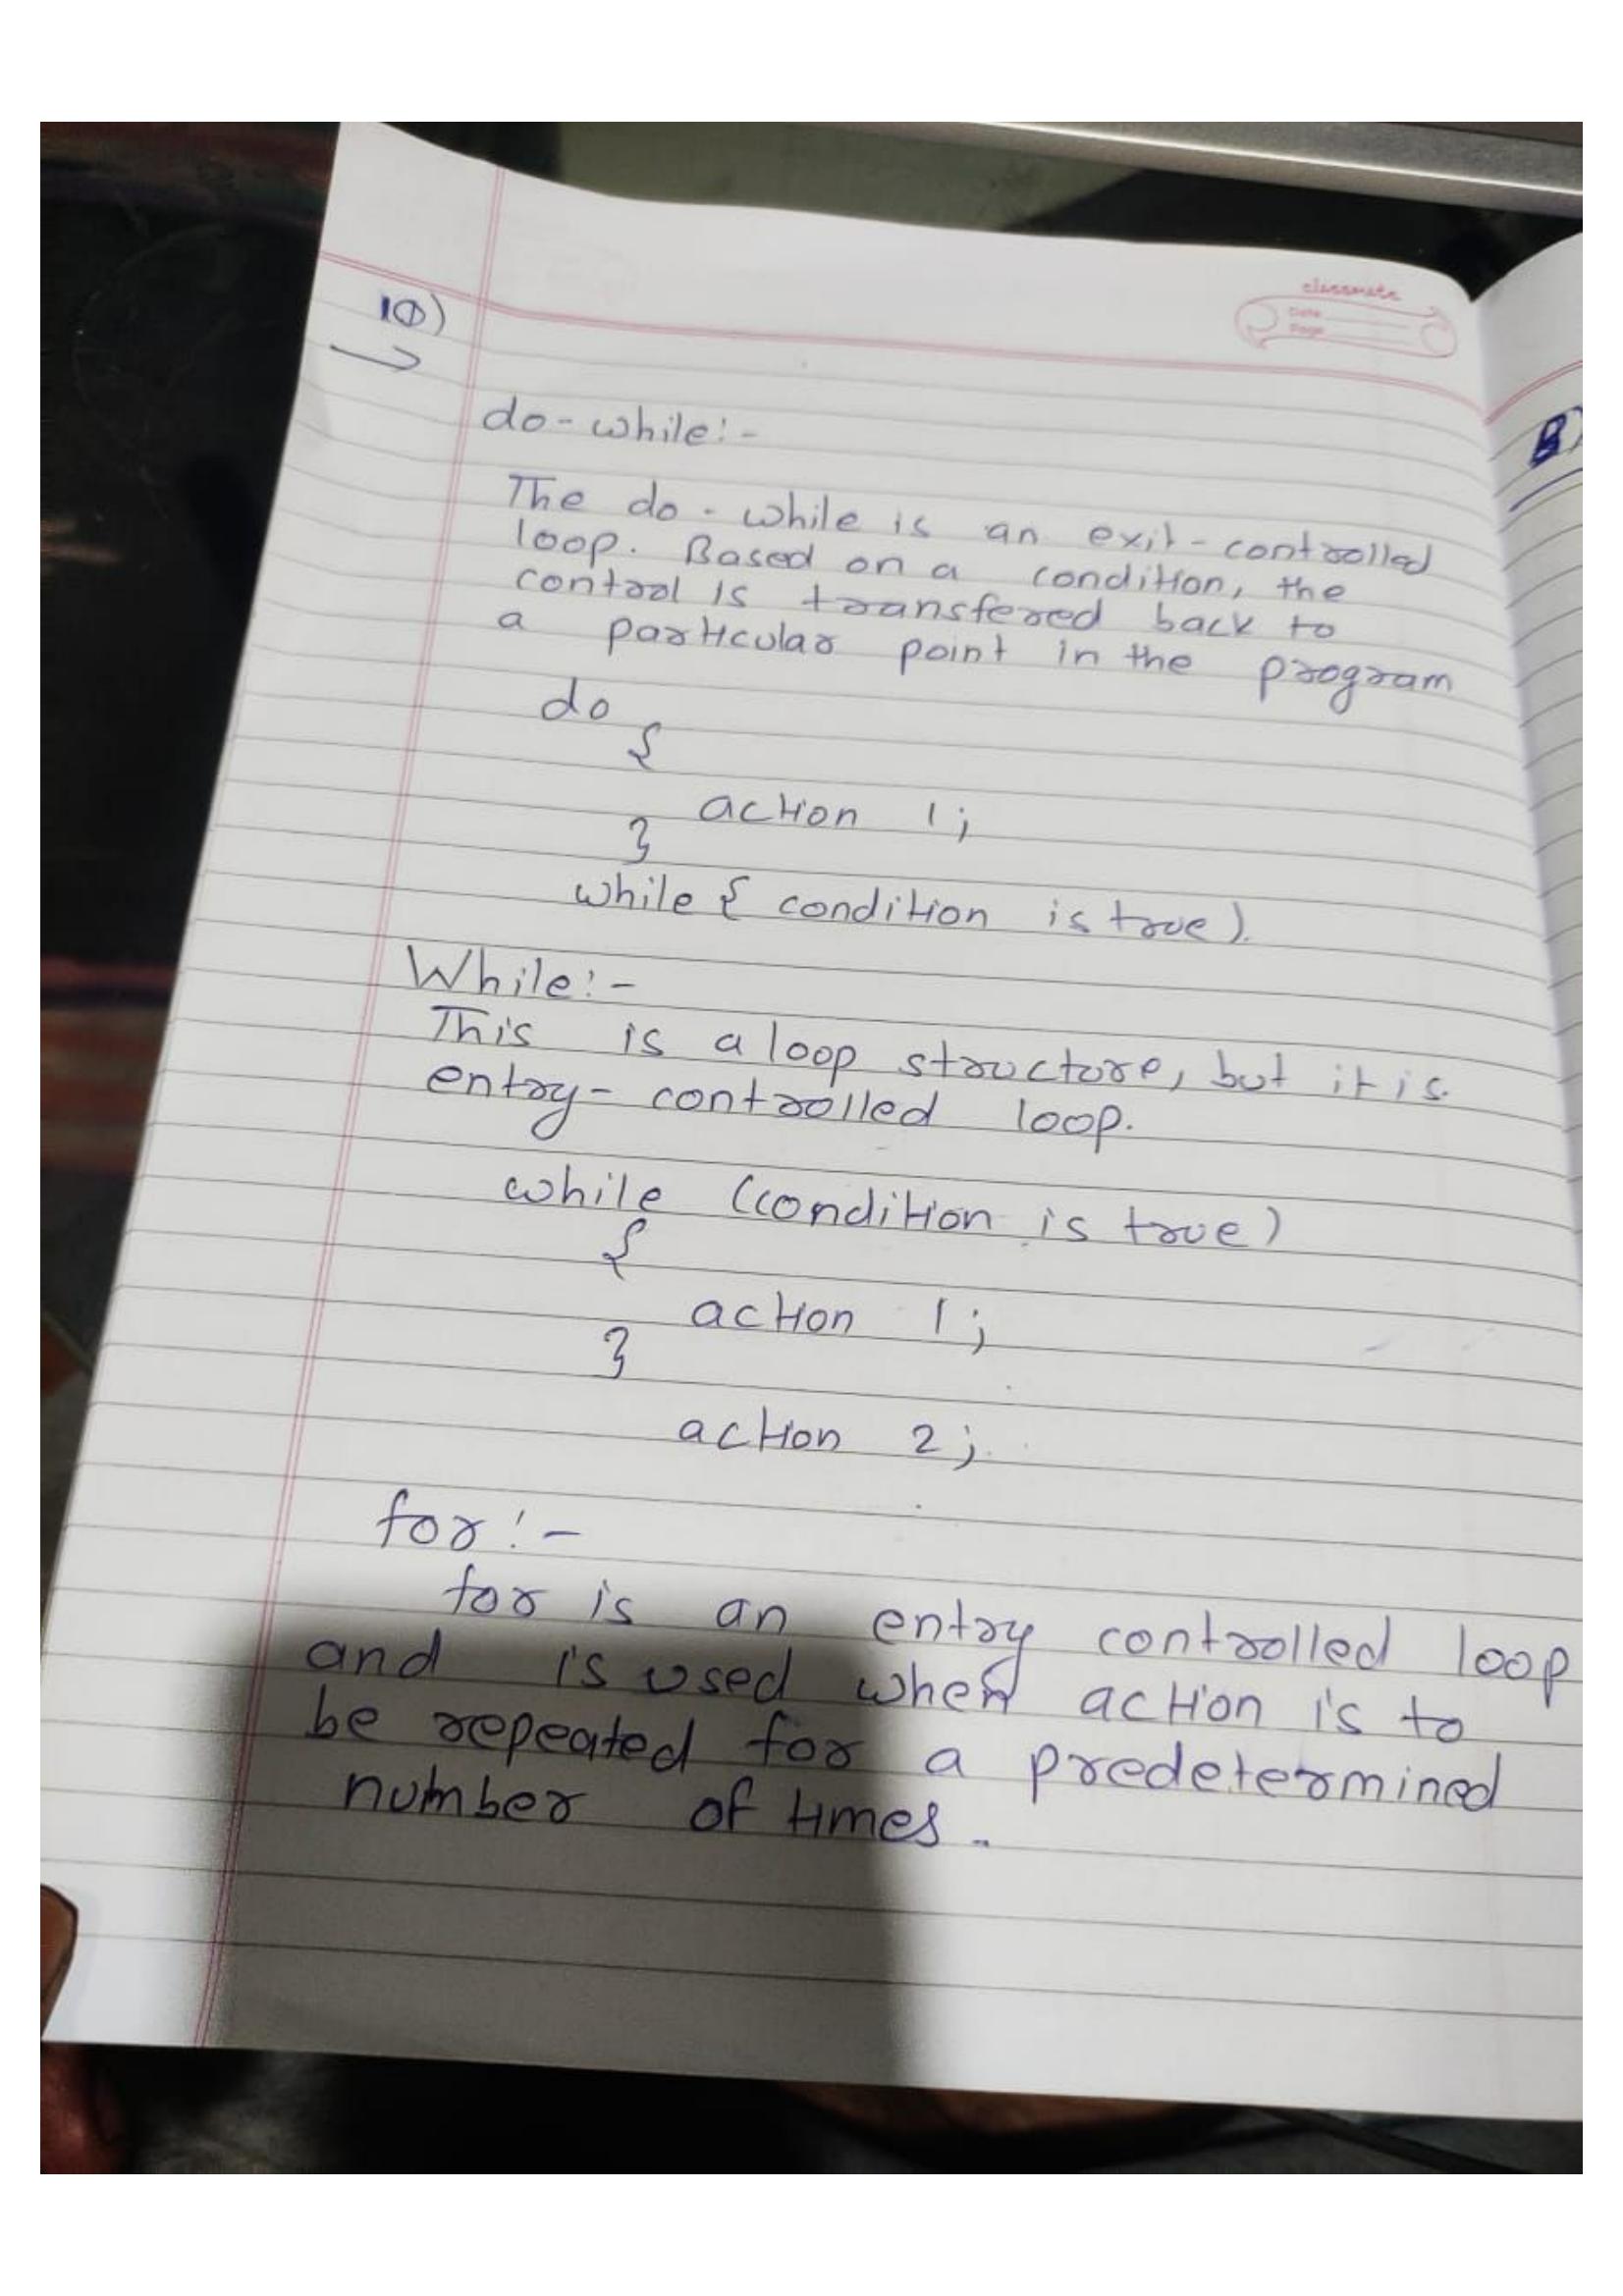 classmate
Date
Page
10)
do-while:-
The do-while is an exit-controlled
loop. Based on a condition, the
control is transfered back to
a particular point in the program
do
{
action 1;
}
while { condition is true).
While:-
This is a loop structure, but it is
entry-controlled loop.
while (condition is true)
{
action 1;
}
action 2;
for:-
for is an entry controlled loop
and is used when action is to
be repeated for a predetermined
number of times.